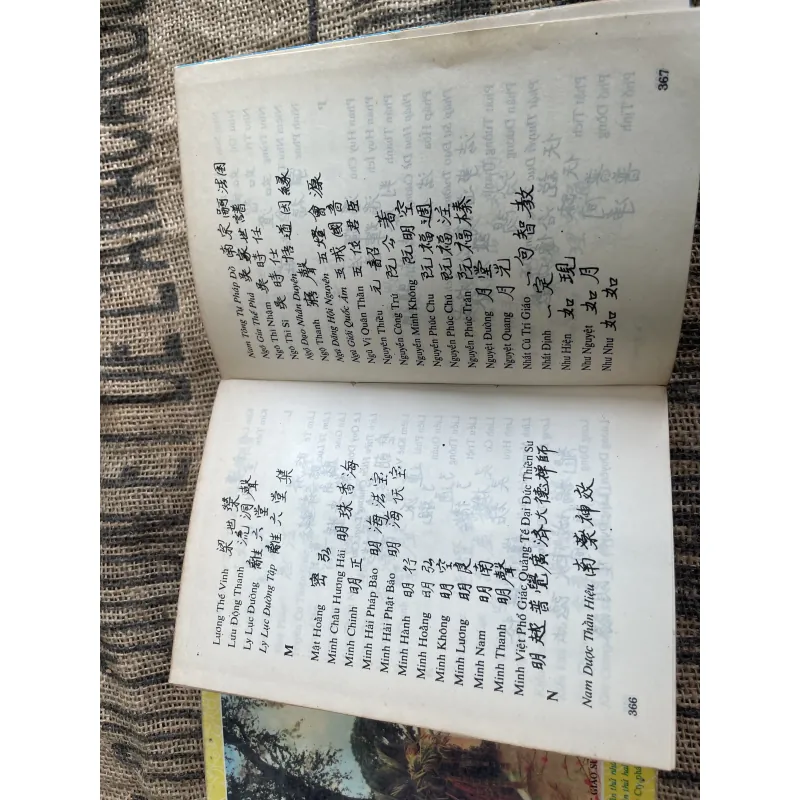 Lương Thế Vinh 梁世榮
Lưu Động Thanh 流洞聲
Ly Lục Đường 離六堂
Ly Lục Đường Tập 離六堂集
M
Mật Hoằng 密弘
Minh Châu Hương Hải 明珠香海
Minh Chính 明正
Minh Hải Pháp Bảo 明海法宝
Minh Hải Phật Bảo 明海仸宝
Minh Hành 明行
Minh Hoằng 明弘
Minh Không 明空
Minh Lương 明良
Minh Nam 明南
Minh Thanh 明聲
Minh Việt Phổ Giác Quảng Tế Đại Đức Thiền Sư
明越普覺廣済大德禅師
N
Nam Dược Thần Hiệu 南藥神效
366
Nam Tông Tự Pháp Đồ 南宋嗣法图
Ngô Gia Thế Phả 吳家世譜
Ngô Thì Nhậm 吳時任
Ngô Thì Sĩ 吳時仕
Ngộ Đạo Nhân Duyên 悟道因緣
Ngộ Thanh 寤聲
Ngũ Đăng Hội Nguyên 五燈會源
Ngũ Giới Quốc Âm 五戒國音
Ngũ Vị Quân Thần 五位君臣
Nguyên Thiều 元韶
Nguyễn Công Trứ 阮公著
Nguyễn Minh Không 阮明空
Nguyễn Phúc Chu 阮福週
Nguyễn Phúc Chú 阮福注
Nguyễn Phúc Trăn 阮福榛
Nguyệt Đường 月堂
Nguyệt Quang 月光
Nhất Cú Tri Giáo 一句智教
Nhất Định 一定
Như Hiện 如現
Như Nguyệt 如月
Như Như 如如
367
GIÁO SƯ